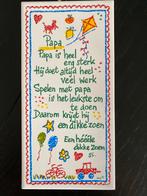 Papa
Papa is heel
erg sterk
Hij doet altijd heel
veel werk
Spelen met papa
is het leukste om
te doen
Daarom krijgt hij
een dikke zoen
Een hééééle
dikke zoen